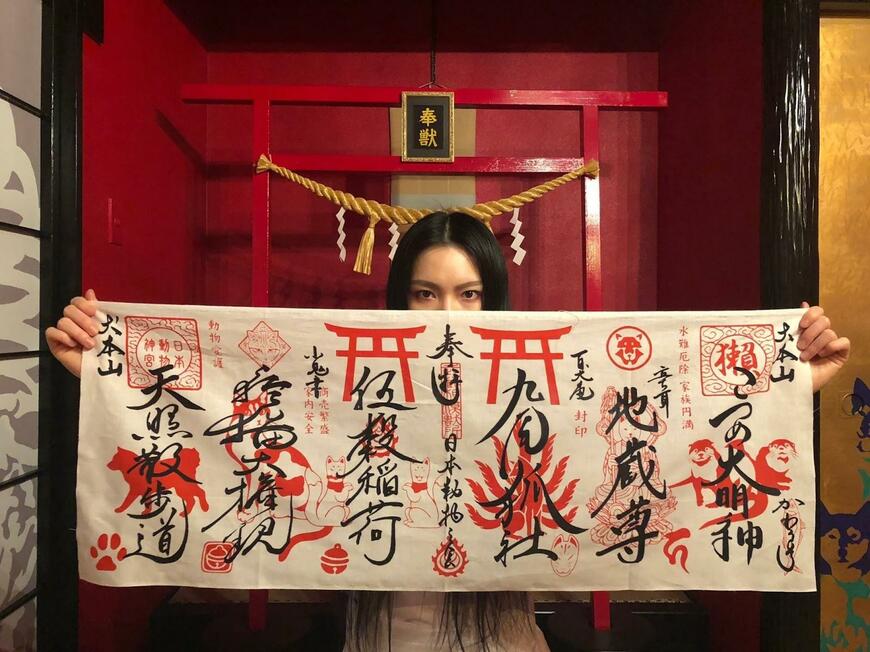 奉獣
犬本山
獺
水難厄除 家族円満
こつめ大明神
かわうそ
地蔵尊
封印
九尾狐社
日本動物
伍穀稲荷
商売繁盛
家内安全
猫大権現
動物守護
犬本山
日本動物神宮
天照散歩道